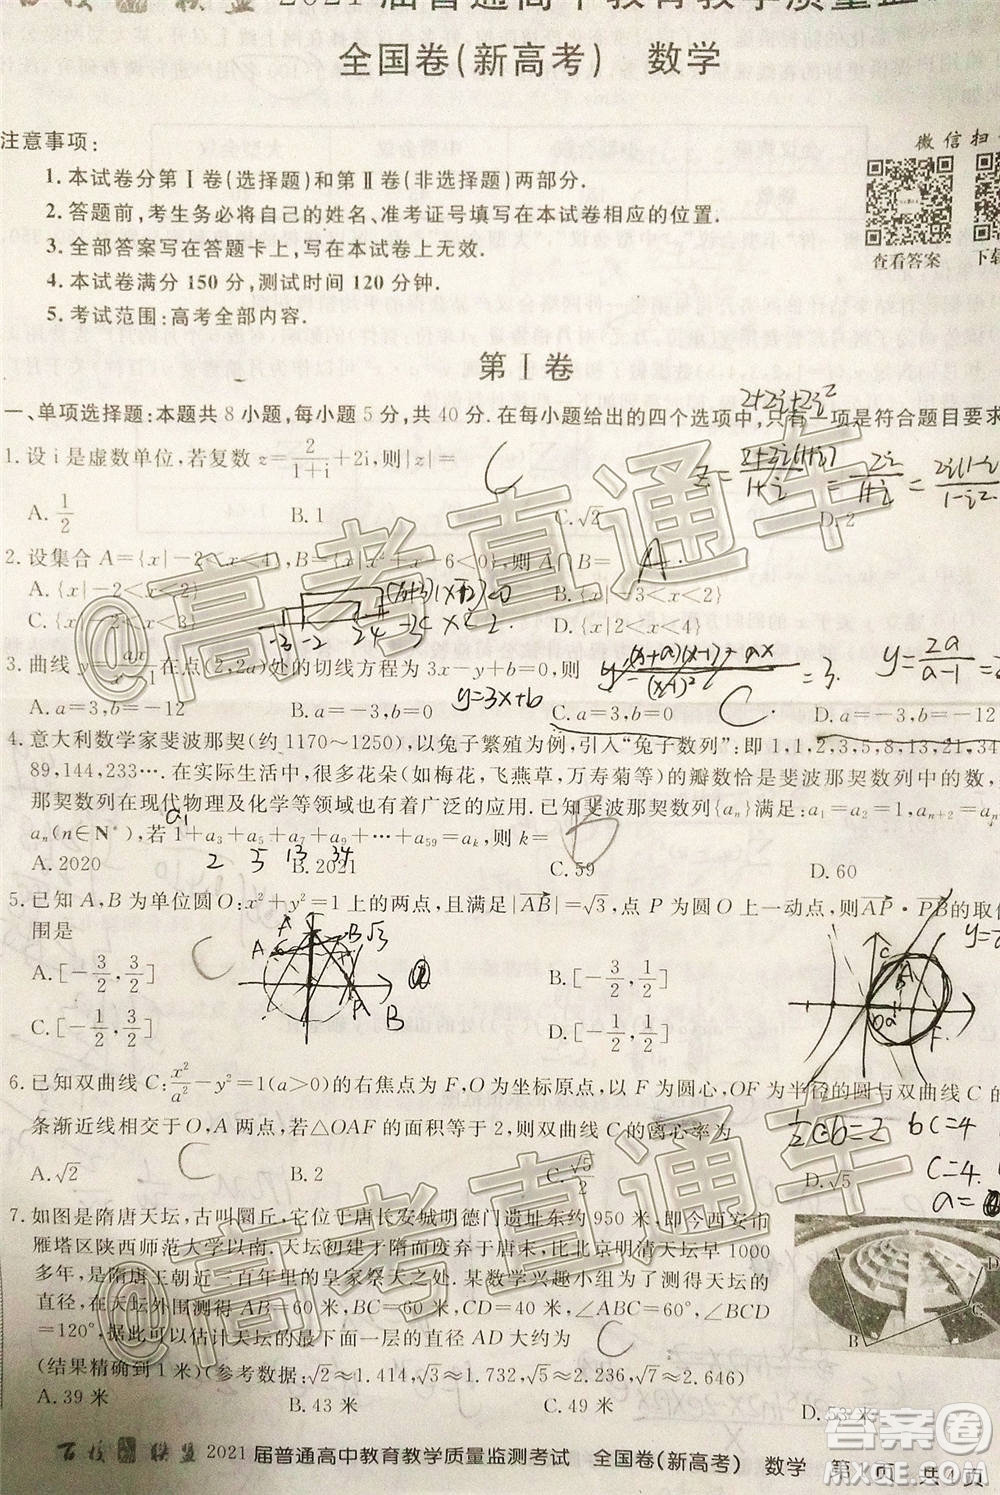 百校联盟2021届普通高中教育教学质量监
全国卷(新高考) 数学
注意事项:
微信扫
1.本试卷分第Ⅰ卷(选择题)和第Ⅱ卷(非选择题)两部分.
2.答题前,考生务必将自己的姓名、准考证号填写在本试卷相应位置.
3.全部答案写在答题卡上,写在本试卷上无效.
4.本试卷满分 150 分,测试时间 120 分钟.
5.考试范围:高考全部内容.
查看答案 下载
第Ⅰ卷
一、单项选择题:本题共 8 小题,每小题 5 分,共 40 分.在每小题给出的四个选项中,只有一项是符合题目要求
2+2i+2i²
1.设 i 是虚数单位,若复数 z=2/(1+i)+2i,则|z|= C
A.1/2 B.1 C.√2 D.2
2.设集合 A={x|-2<x<4},B={x|x²+x-6<0},则 A∩B= A.
A.{x|-2<x<2} B.{x|-3<x<2}
C. D.{x|-3<x<4}
-3<x<2
3.曲线 y=ax/(x-1)在点(2,2a)处的切线方程为 3x-y+b=0,则
y=3x+b
A.a=3,b=-12 B.a=3,b=0 C.a=-3,b=0 D.a=-3,b=-12
C
y=2a/(a-1)
4.意大利数学家斐波那契(约 1170~1250),以兔子繁殖为例,引入“兔子数列”:即 1,1,2,3,5,8,13,21,34
89,144,233….在实际生活中,很多花朵(如梅花,飞燕草,万寿菊等)的瓣数恰是斐波那契数列中的数,
那契数列在现代物理及化学等领域也有着广泛的应用.已知斐波那契数列{aₙ}满足:a₁=a₂=1,aₙ₊₂=
aₙ(n∈N*),若 1+a₃+a₅+a₇+a₉+…+a₅₉=aₖ,则 k= B
a₁ 2 5 13 34
A.2020 B.2021 C.59 D.60
5.已知 A,B 为单位圆 O:x²+y²=1 上的两点,且满足|AB|=√3,点 P 为圆 O 上一动点,则AP·PB的取值
围是 C
A.[-3/2,1/2] B.[-1/2,1/2]
C.[-1/2,3/2] D.[-3/2,3/2]
6.已知双曲线 C:x²/a²-y²=1(a>0)的右焦点为 F,O 为坐标原点,以 F 为圆心,OF 为半径的圆与双曲线 C 的
条渐近线交于 O,A 两点,若△OAF 的面积等于 2,则双曲线 C 的离心率为
1/2 c·b=2 bc=4
C
c=4.
A.√2 B.2 C.√5/2 D.√5
7.如图是隋唐天坛,古叫圜丘,它位于唐长安城明德门遗址东约 950 米,即今西安市
雁塔区陕西师范大学以南.天坛初建于隋而废弃于唐末,比北京明清天坛早 1000
多年,是隋唐王朝近三百年里的皇家祭天之处.某数学兴趣小组为了测得天坛的
直径,在天坛外围测得 AB=60 米,BC=60 米,CD=40 米,∠ABC=60°,∠BCD
=120°,据此可以估计天坛的最下面一层的直径 AD 大约为 C
(结果精确到 1 米)(参考数据:√2≈1.414,√3≈1.732,√5≈2.236,√7≈2.646)
A.39 米 B.43 米 C.49 米 D.53 米
百校联盟 2021 届普通高中教育教学质量监测考试 全国卷(新高考) 数学 第 1 页 共 4 页
@高考直通车
答案圈